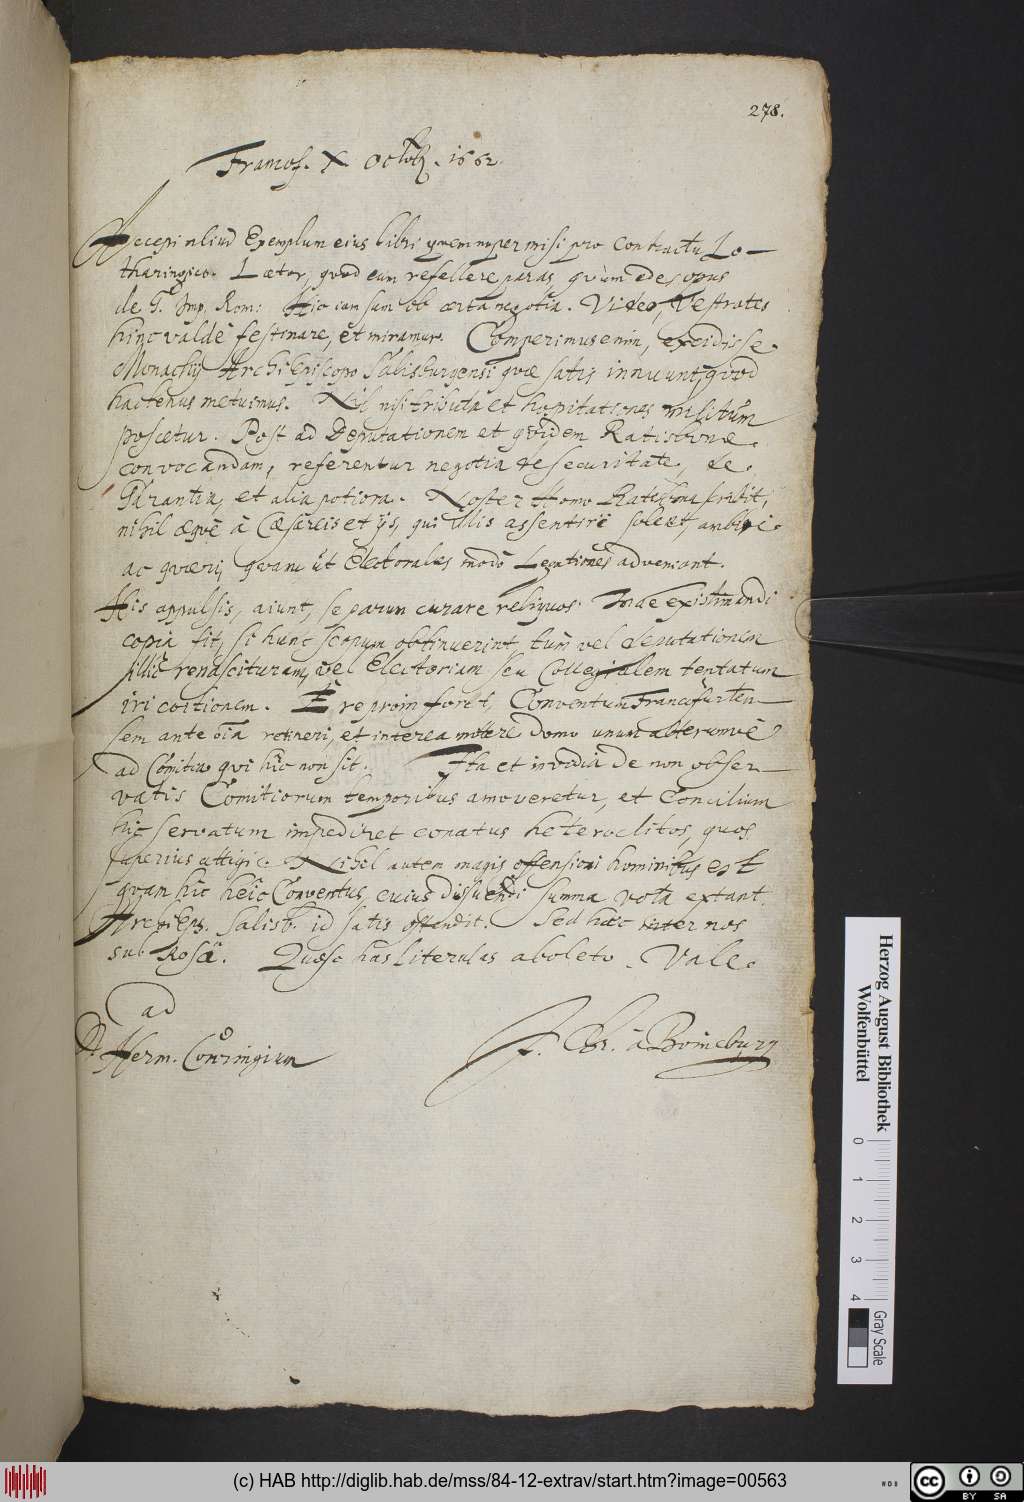 278.
Francof. X Octobr. 1662
Accepi aliud Exemplum eius libri quem nuper misi pro Contractu Lo-
tharingico. Lætor, quod eum refellere paras, quum edes opus
de J. Imp. Rom: Hic iam sum ob certa negotia. Video, Vestrates
hinc valdè festinare, et miramur. Comperimus enim, excidisse
Monachij ArchiEpiscopo Salisburgensi quæ satis innuunt, quod
hactenus metuimus. Nil nisi tributa et hospitationes militum
poscetur. Post ad Deputationem et quidem Ratisbonæ
convocandam, referentur negotia de securitate, de
Garantia, et alia potiora. Noster Homo Ratisbona scribit,
nihil æquè à Cæsareis et ijs, qui illis assentiri solent, ambiri
ac quæri, quam ut Electorales modò Legationes adveniant.
His appulsis, aiunt, se parum curare reliquos. Inde existimandi
copia fit, si hunc scopum obtinuerint, tum vel deputationem
illic renascituram, vel Electoriam seu Collegialem tentatum
iri coitionem. E re proin foret, Conventum Francofurten-
sem ante oia retineri, et interea mittere domo unum alterumvè
ad Comitia qui hîc non sit. Ita et invidia de non obser-
vatis Comitiorum temporibus amoveretur, et Concilium
hic servatum impediret conatus heteroclitos, quos
superius attigi. Nihil autem magis offensioni hominibus est
quam hic heic Conventus, cuius dissuendi summa vota extant.
Archieps. Salisb. id satis ostendit. Sed hæc inter nos
sub Rosâ. Quæso has literulas aboleto. Vale.
ad
D. Herm. Conringium
J. Chr. à Boineburg
Herzog August Bibliothek
Wolfenbüttel
0 1 2 3 4
Gray Scale
(c) HAB http://diglib.hab.de/mss/84-12-extrav/start.htm?image=00563
cc BY SA